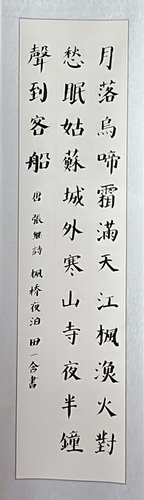 月落烏啼霜滿天江楓漁火對
愁眠姑蘇城外寒山寺夜半鐘
聲到客船
唐張繼詩楓橋夜泊田一含書